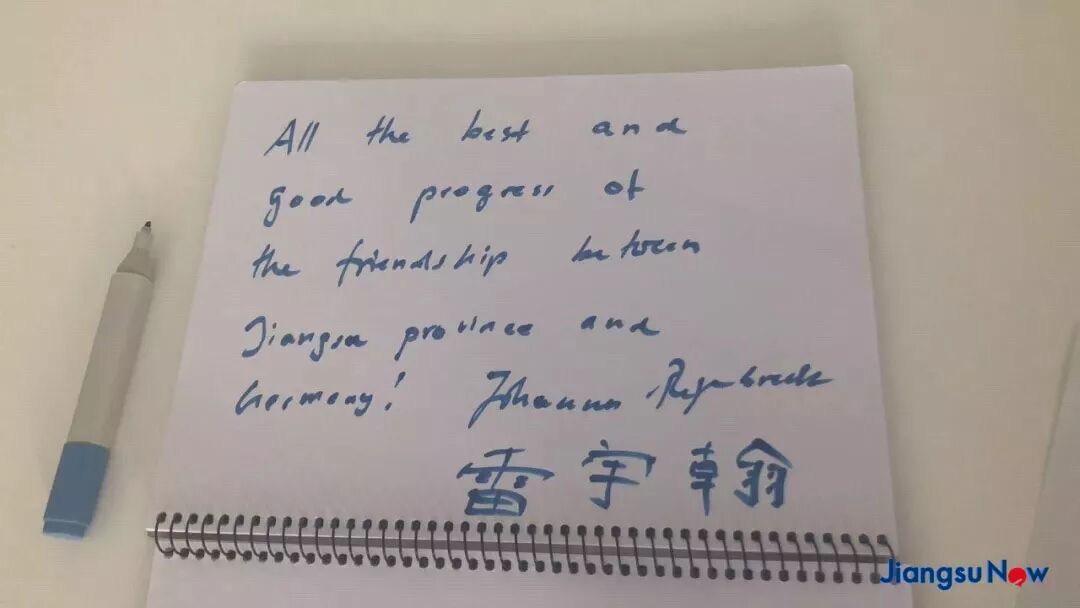 All the best and
good progress of
the friendship between
Jiangsu province and
Germany! Johannes
雷宇翰
Jiangsu Now